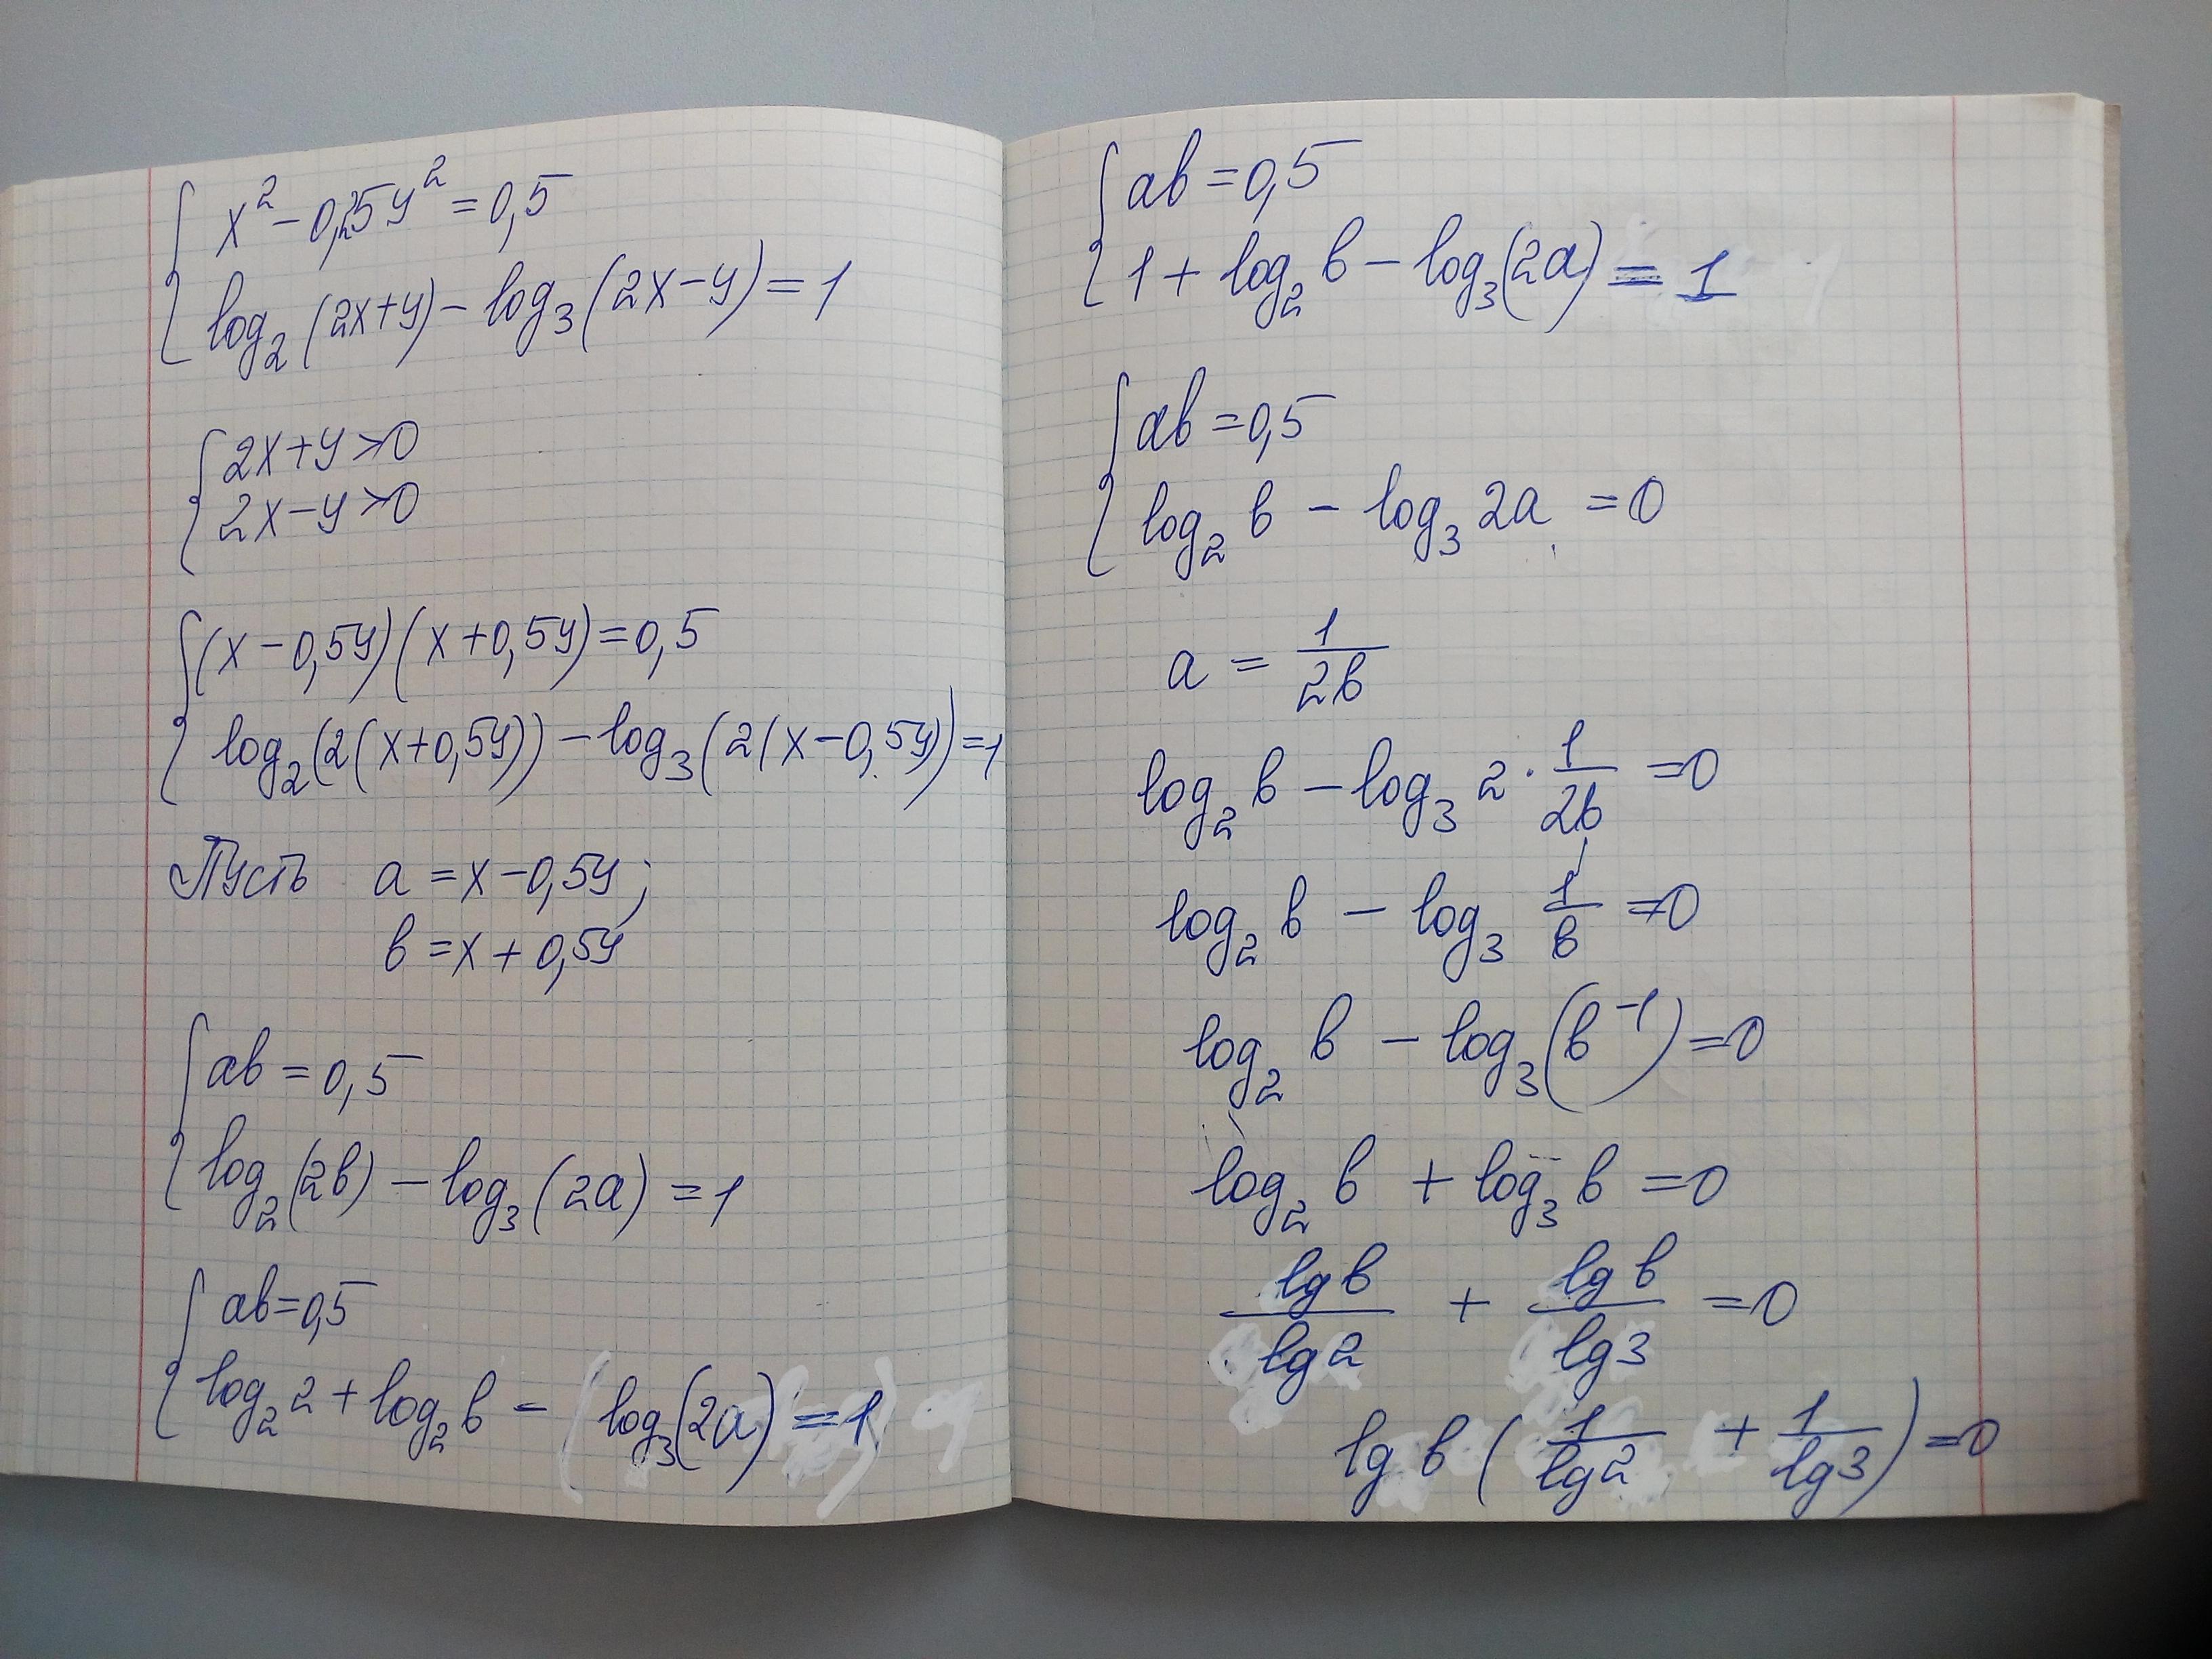 x² − 0,25y² = 0,5
log₂(2x+y) − log₃(2x−y) = 1
2x+y>0
2x−y>0
(x−0,5y)(x+0,5y)=0,5
log₂(2(x+0,5y)) − log₃(2(x−0,5y))=1
Пусть a = x−0,5y;
в = x+0,5y
aв = 0,5
log₂(2в) − log₃(2a) = 1
aв=0,5
log₂2 + log₂в − log₃(2a) = 1
aв = 0,5
1 + log₂в − log₃(2a) = 1
aв = 0,5
log₂ в − log₃ 2a = 0
a = 1/2в
log₂ в − log₃ 2 · 1/2в = 0
log₂ в − log₃ 1/в = 0
log₂ в − log₃(в⁻¹) = 0
log₂ в + log₃ в = 0
lg в/lg 2 + lg в/lg 3 = 0
lg в (1/lg2 + 1/lg3) = 0